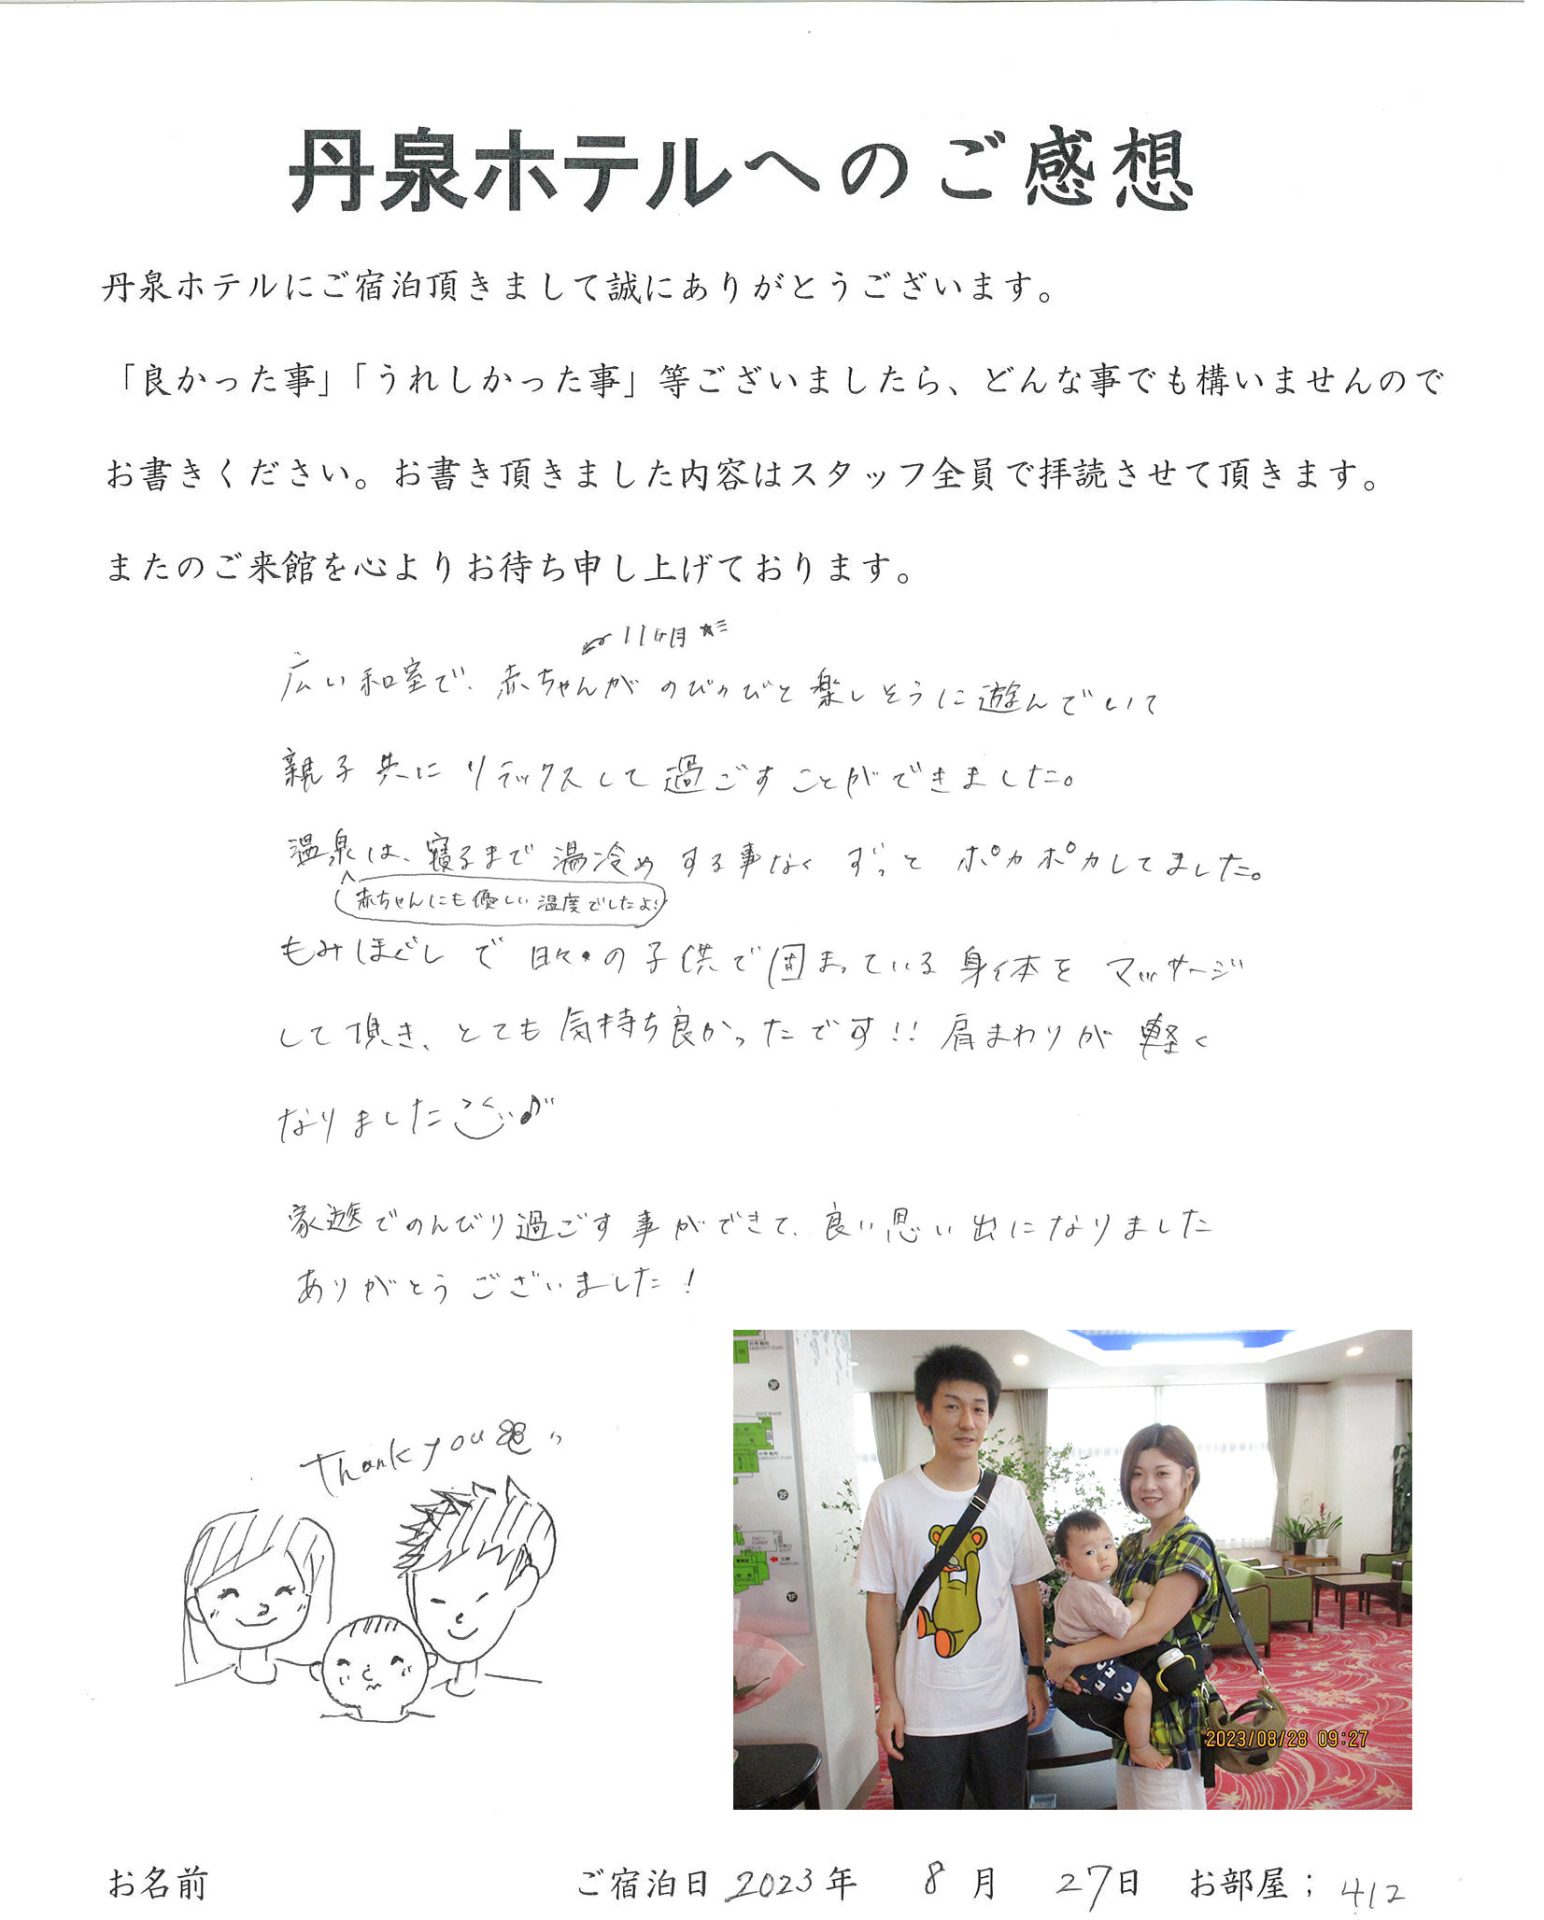 丹泉ホテルへのご感想
丹泉ホテルにご宿泊頂きまして誠にありがとうございます。
「良かった事」「うれしかった事」等ございましたら、どんな事でも構いませんので
お書きください。お書き頂きました内容はスタッフ全員で拝読させて頂きます。
またのご来館を心よりお待ち申し上げております。
11ヶ月
広い和室で、赤ちゃんがのびのびと楽しそうに遊んでいて
親子共にリラックスして過ごすことができました。
温泉は、寝るまで湯冷めする事なくずっとポカポカしてました。
赤ちゃんにも優しい温度でしたよ!
もみほぐしで日々の子供で固まっている身体をマッサージ
して頂き、とても気持ち良かったです!!肩まわりが軽く
なりました
家族でのんびり過ごす事ができて、良い思い出になりました
ありがとうございました!
Thank you
3F
2F
1F
2023/08/28 09:27
お名前 ご宿泊日 2023年 8月 27日 お部屋; 412